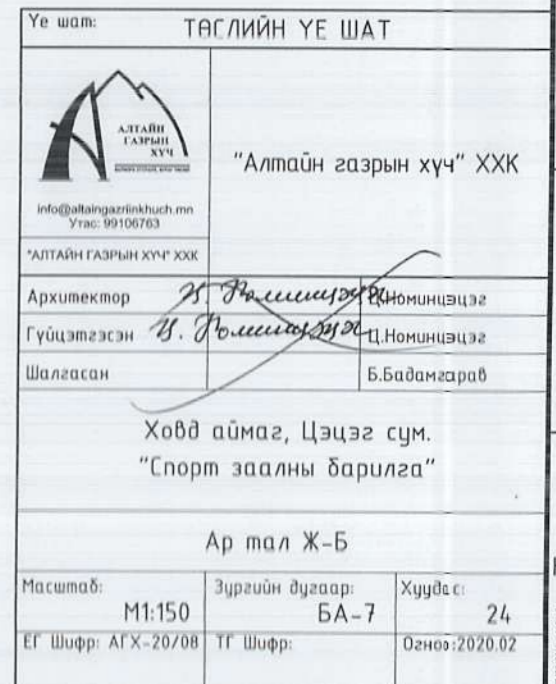 Үе шат: ТӨСЛИЙН ҮЕ ШАТ
АЛТАЙН
ГАЗРЫН
ХҮЧ
"Алтайн газрын хүч" ХХК
info@altaingazriinkhuch.mn
Утас: 99106763
"АЛТАЙН ГАЗРЫН ХҮЧ" ХХК
Архитектор Ц. Номинцэцэг Ц.Номинцэцэг
Гүйцэтгэсэн Ц. Номинцэцэг Ц.Номинцэцэг
Шалгасан Б.Бадамгарав
Ховд аймаг, Цэцэг сум.
"Спорт заалны барилга"
Ар тал Ж-Б
Масштаб: Зургийн дугаар: Хуудас:
М1:150 БА-7 24
ЕГ Шифр: АГХ-20/08 ТГ Шифр: Огноо:2020.02